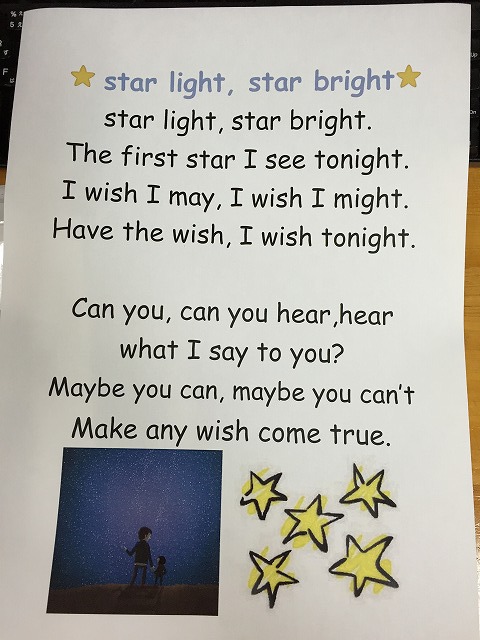 star light, star bright
star light, star bright.
The first star I see tonight.
I wish I may, I wish I might.
Have the wish, I wish tonight.
Can you, can you hear,hear
what I say to you?
Maybe you can, maybe you can't
Make any wish come true.